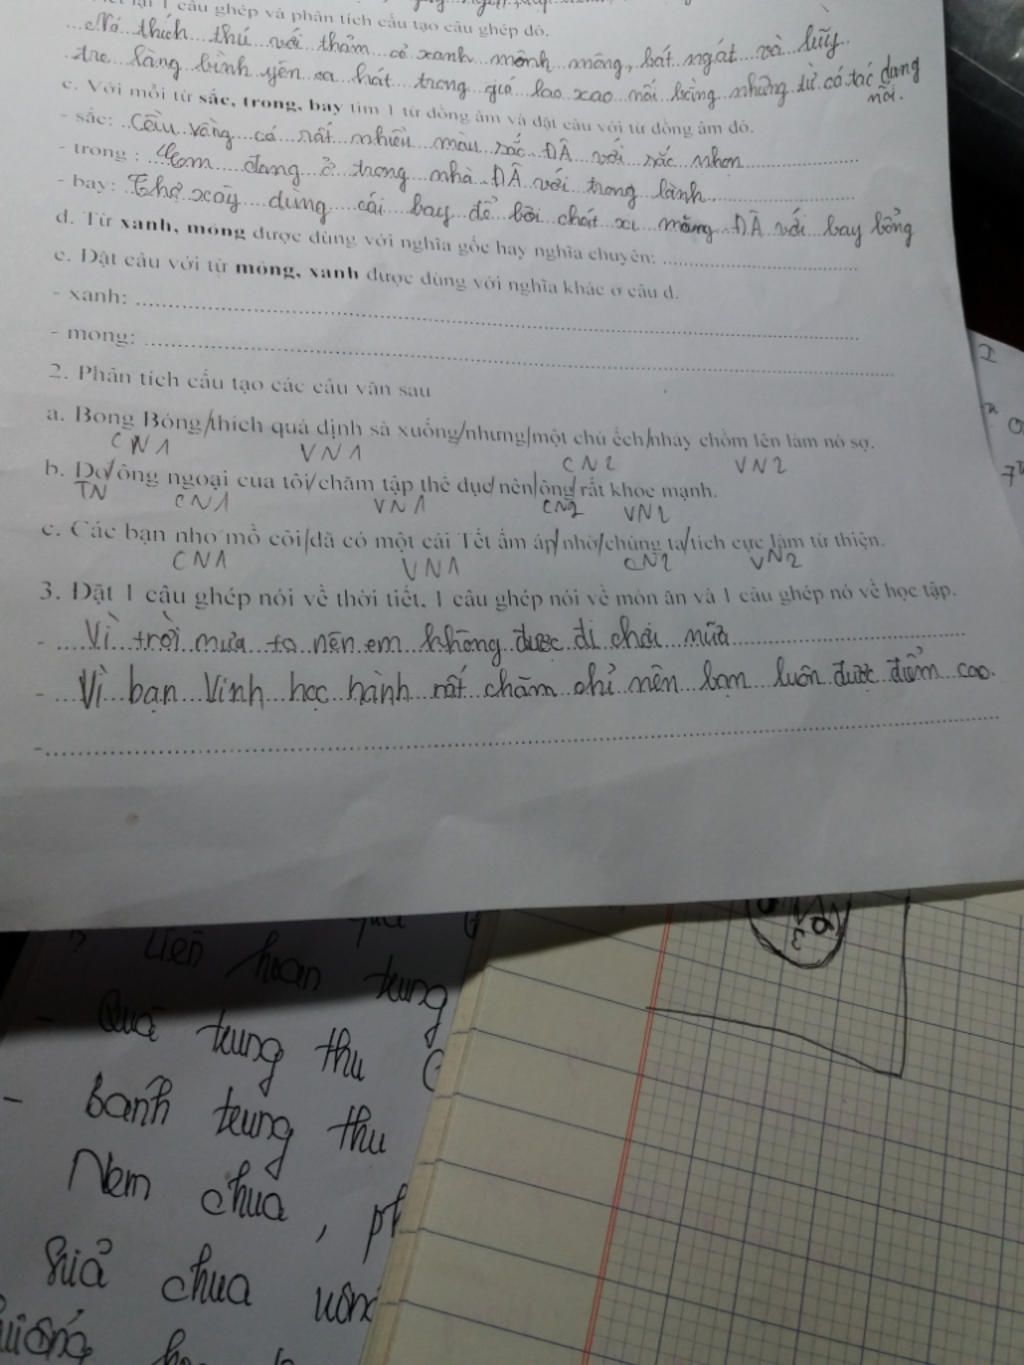 1 câu ghép và phân tích cấu tạo câu ghép đó.
Nó thích thú với thảm cỏ xanh mênh mông, bát ngát và luỹ
tre làng bình yên ca hát trong gió lao xao nối bằng những từ có tác dụng
nối.
c. Với mỗi từ sắc, trong, bay tìm 1 từ đồng âm và đặt câu với từ đồng âm đó.
- sắc: Cầu vồng có rất nhiều màu sắc ĐÂ với sắc nhọn
- trong : Nam đang ở trong nhà ĐÂ với trong lành
- bay: Thợ xây dùng cái bay để bôi chát xi măng ĐÂ với bay bổng
d. Từ xanh, mỏng được dùng với nghĩa gốc hay nghĩa chuyển:
e. Đặt câu với từ mỏng, xanh được dùng với nghĩa khác ở câu d.
- xanh:
- mỏng:
2. Phân tích cấu tạo các câu văn sau
a. Bong Bóng/thích quá định sà xuống/nhưng/một chú ếch/nhảy chồm lên làm nó sợ.
CN1 VN1 CN2 VN2
b. Dạ/ông ngoại của tôi/chăm tập thể dục/nên/ông/rất khỏe mạnh.
TN CN1 VN1 CN2 VN2
c. Các bạn nhỏ mồ côi/đã có một cái Tết ấm áp/nhờ/chúng ta/tích cực làm từ thiện.
CN1 VN1 CN2 VN2
3. Đặt 1 câu ghép nói về thời tiết, 1 câu ghép nói về món ăn và 1 câu ghép nó về học tập.
- Vì trời mưa to nên em không được đi chơi nữa
- Vì bạn Vinh học hành rất chăm chỉ nên bạn luôn được điểm cao.
-
Liên hoan trung
- Quà trung thu
- bánh trung thu
Nem chua, ph
chua